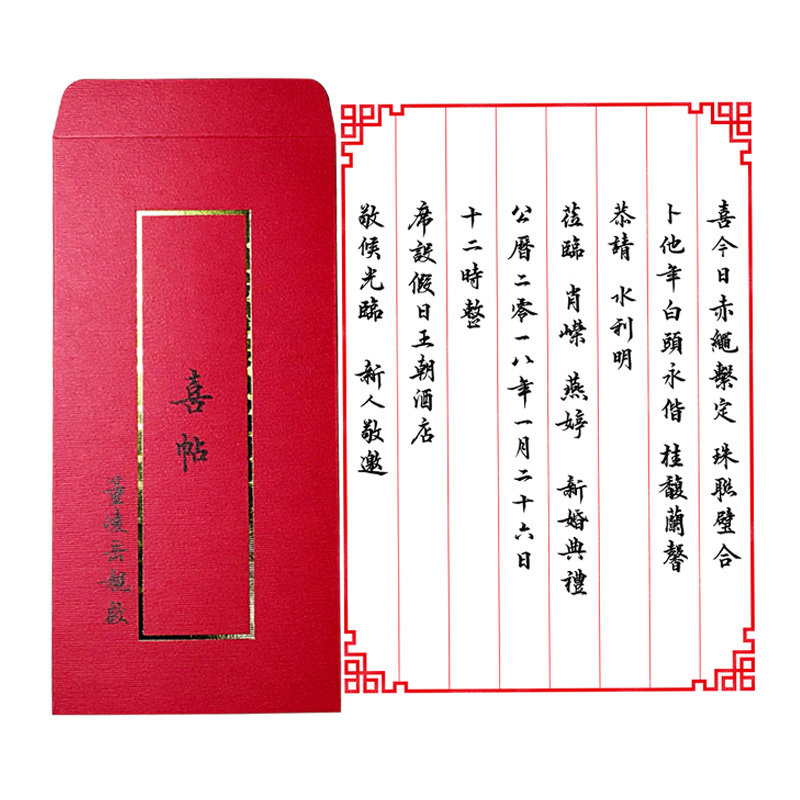 喜今日赤繩繫定 珠聯璧合
卜他年白頭永偕 桂馥蘭馨
恭請 水利明
蒞臨 肖嶸 燕婷 新婚典禮
公曆二零一八年一月二十六日
十二時整
席設假日王朝酒店
敬候光臨 新人敬邀
喜帖
董凌岳親啟